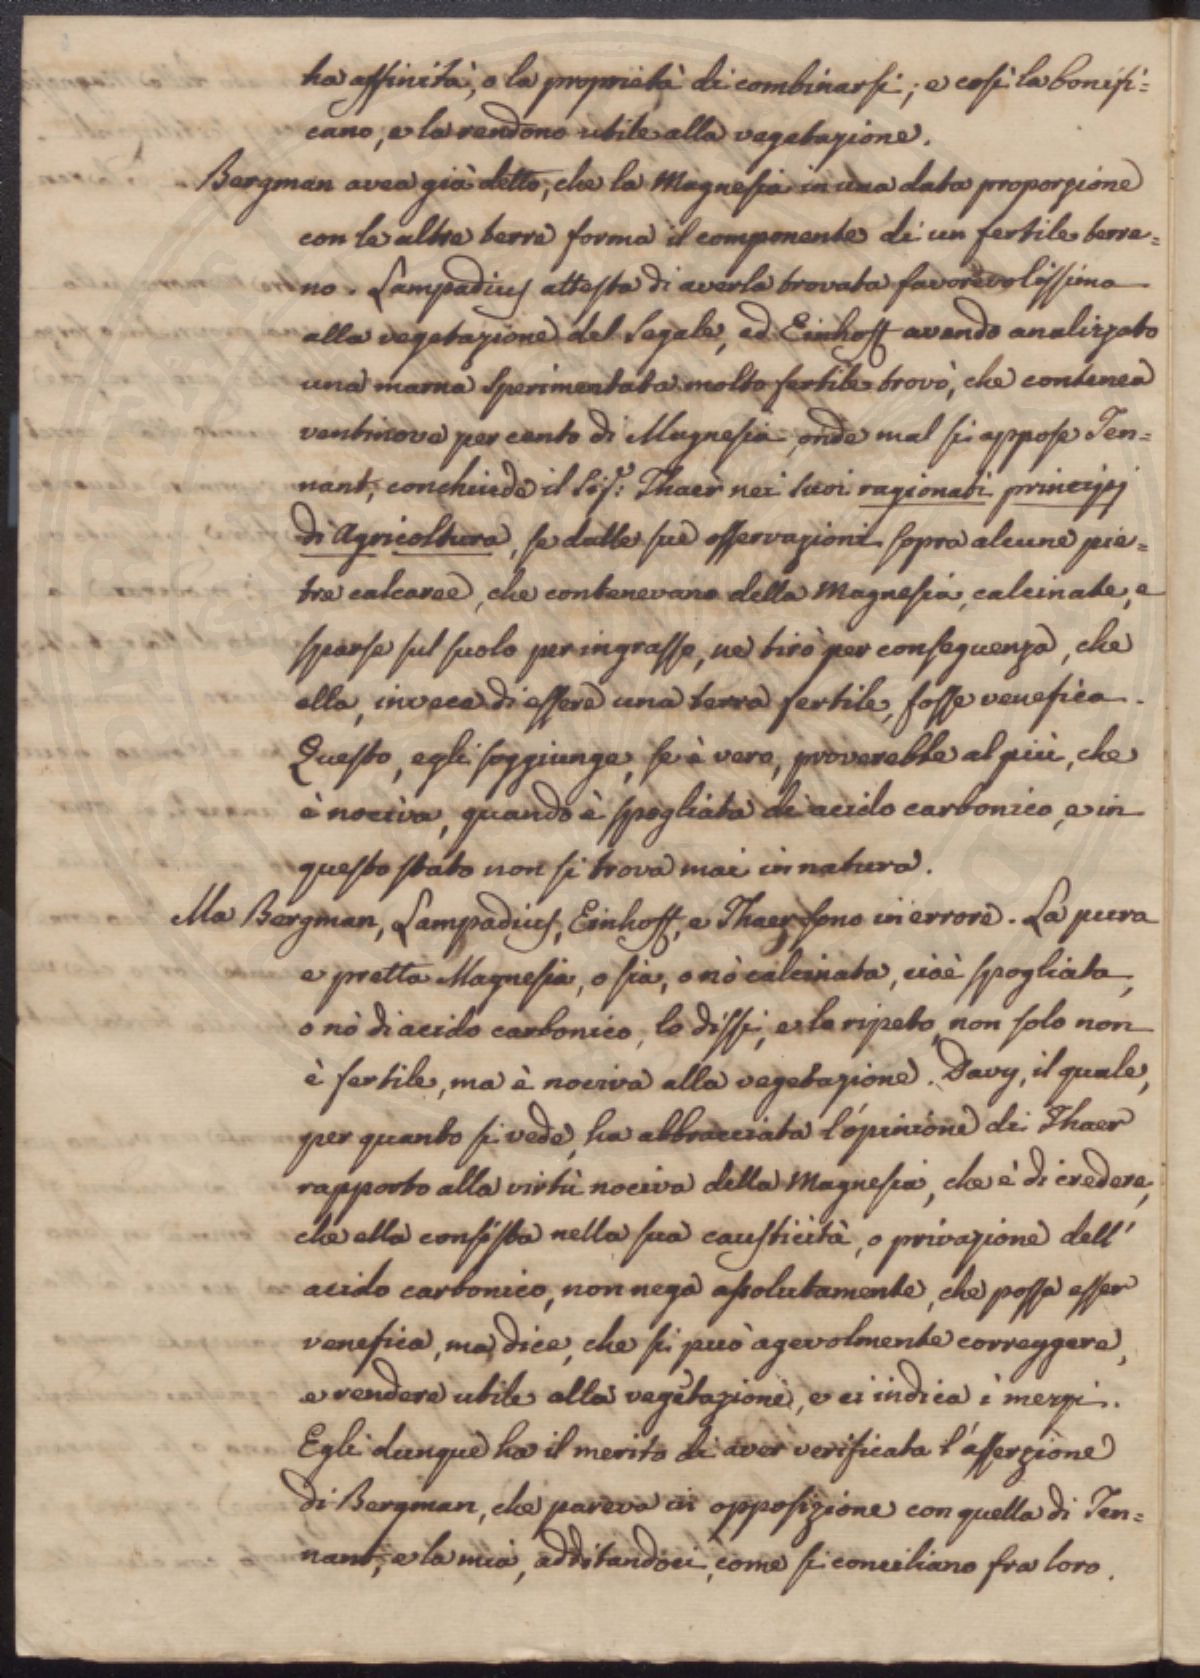 ha affinità, o la proprietà di combinarsi; e così la bonifi=
cano, e la rendono utile alla vegetazione.
Bergman avea già detto, che la Magnesia in una data proporzione
con le altre terre forma il componente di un fertile terre=
no. Lampadius attesta di averla trovata favorevolissima
alla vegetazione del Segale, ed Einhoff avendo analizzato
una marna sperimentata molto fertile trovò, che contenea
ventinove per cento di Magnesia, onde mal si appose Ten=
nant, conchiude il Sig.r Thaer nei suoi ragionati principj
di Agricoltura, se dalle sue osservazioni sopra alcune pie=
tre calcaree, che contenevano della Magnesia, calcinate, e
sparse sul suolo per ingrasso, ne tirò per conseguenza, che
ella, invece di essere una terra fertile, fosse venefica.
Questo, egli soggiunge, se è vero, proverebbe al più, che
è nociva, quando è spogliata di acido carbonico, e in
questo stato non si trova mai in natura.
Ma Bergman, Lampadius, Einhoff, e Thaer sono in errore. La pura
e pretta Magnesia, o sia, o nò calcinata, cioè spogliata,
o nò di acido carbonico, lo dissi, e lo ripeto, non solo non
è fertile, ma è nociva alla vegetazione. Davy, il quale,
per quanto si vede, ha abbracciata l'opinione di Thaer
rapporto alla virtù nociva della Magnesia, che è di credere,
che ella consista nella sua causticità, o privazione dell'
acido carbonico, non nega assolutamente, che possa esser
venefica, ma dice, che si può agevolmente correggere,
e rendere utile alla vegetazione, e ci indica i mezzi.
Egli dunque ha il merito di aver verificata l'asserzione
di Bergman, che pareva in opposizione con quella di Ten=
nant, e la mia, additandoci, come si conciliano fra loro.